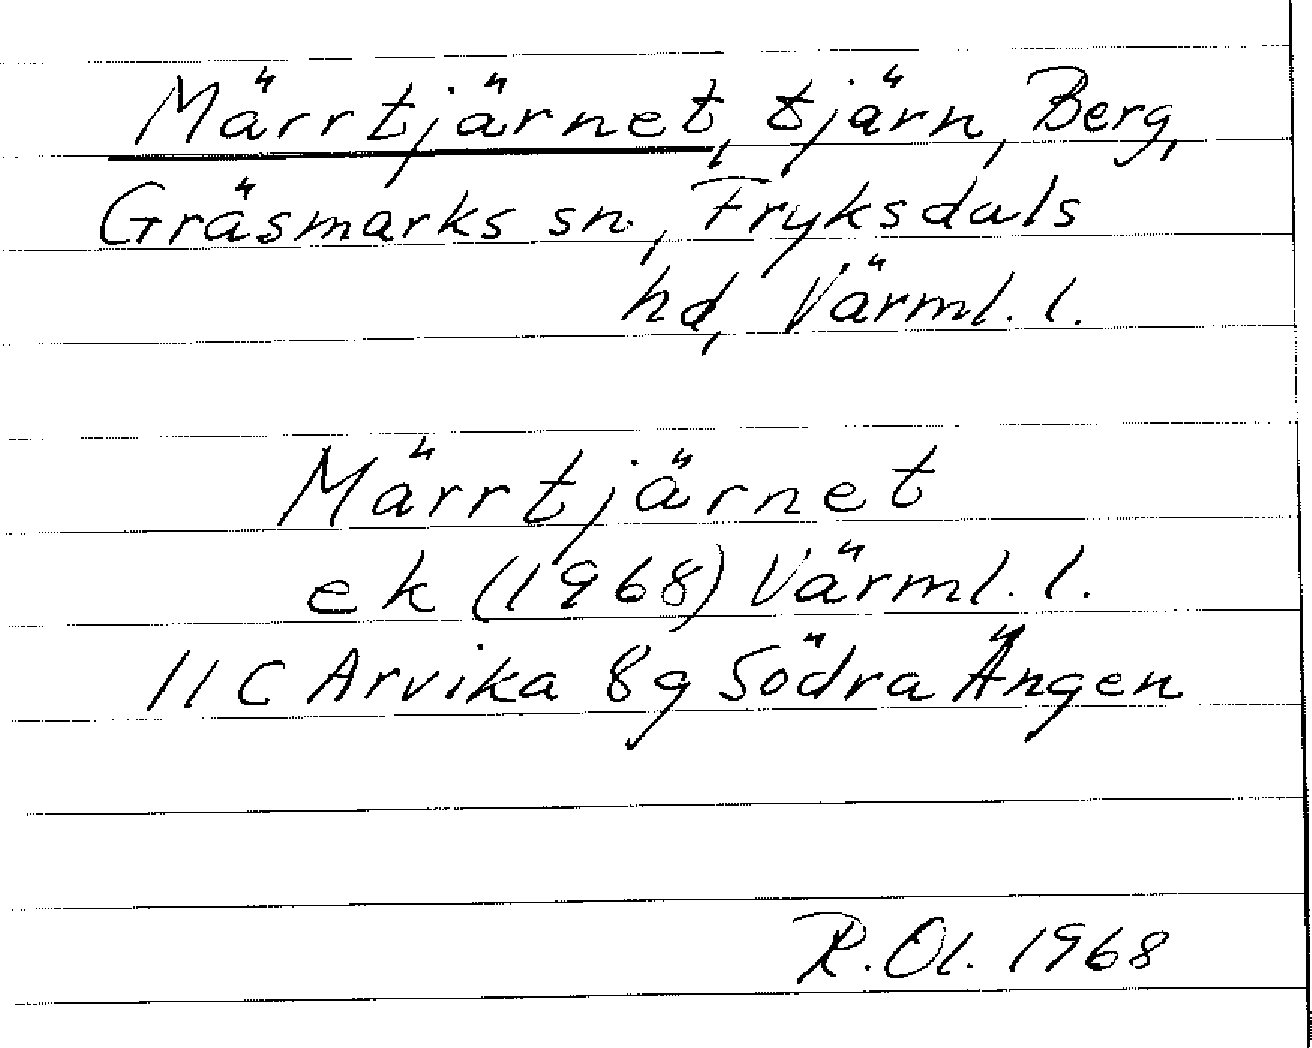 Märrtjärnet, tjärn, Berg,
Gräsmarks sn., Fryksdals
hd, Värml. l.
Märrtjärnet
ek (1968) Värml. l.
11 C Arvika 8g Södra Ängen
R. Ol. 1968